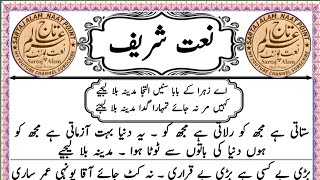 نعت شریف
SARTAJ ALAM NAAT POINT
Sartaj Alam
SARTAJ ALAM NAAT POINT
Sartaj Alam
اے زہرا کے بابا سنیں التجا مدینہ بلا لیجیے
کہیں مر نہ جائے تمہارا گدا مدینہ بلا لیجیے
ستاتی ہے مجھ کو رلاتی ہے مجھ کو ۔ یہ دنیا بہت آزماتی ہے مجھ کو
ہوں دنیا کی باتوں سے ٹوٹا ہوا ۔ مدینہ بلا لیجیے
بڑی بے کسی ہے بڑی بے قراری ۔ نہ کٹ جائے آقا یونہی عمر ساری